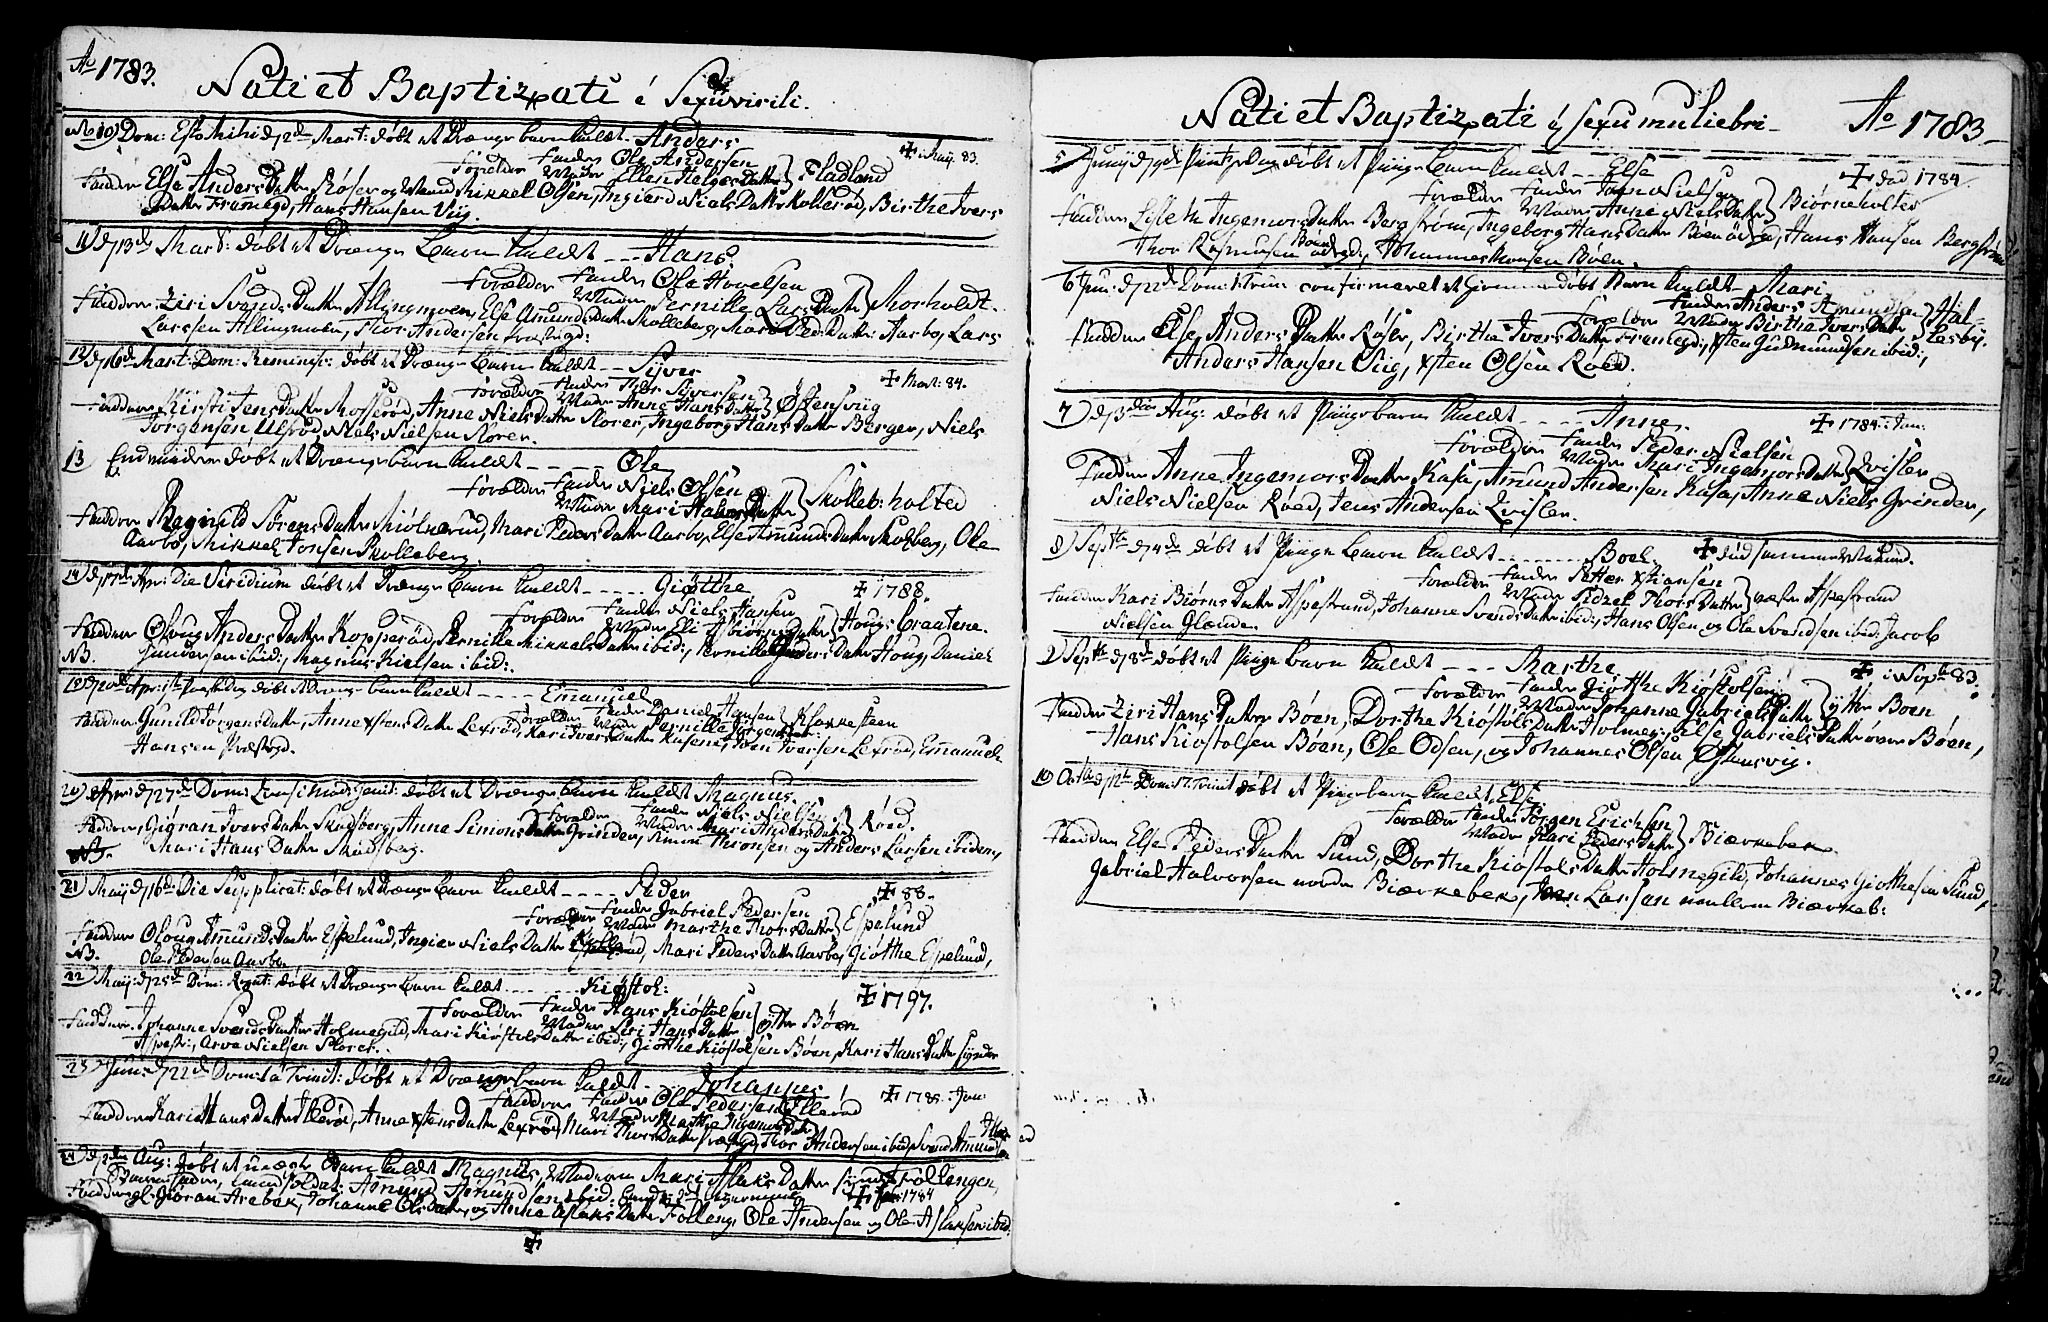 Ao 1783.
Nati et Baptizati é Sexu virili.
No 10) Dom: Esto Mihi d 2de Mart: døbt et Drænge barn kaldt Anders
Forældre Fader Ole Andersen Moder Ellen Helges Datter } Fladland
+ i Maij 83.
Faddere Else Anders Datter Røser og Mikkel Olsen, Ingierd Niels Datter Kollerød, Birthe Ivers
Datter Framegd, Hans Hansen Viig.
11) d 13de Mart: døbt et Drænge barn kaldt --- Hans
Forældre Fader Ole Hovelsen
Moder Pernille Lars Datter } Morholdt.
Faddere: Ziri Svends Datter Allingmoen, Else Amunds Datter Skolleberg, Mari Peders Datter: Aarbo, Lars
Larssen Allingmoen, Thor Andersen
12) d 16de Mart: Dom: Reminisc: døbt et Drænge barn kaldt --- Syver
Forældre Fader Thor Syversen Moder Anne Hans Datter } Østensviig
+ Mart: 84.
Faddere Kirsti Jens Datter Mosserød, Anne Niels Datter Norer, Ingeborg Hans Datter Berger, Niels
Jørgensen Ulsrød, Niels Nielsen Norer.
13) Endvidere døbt et Drænge barn kaldt ---- Ole
Forældre Fader Niels Olsen
Moder Mari Halvors Datter } Skolleb: holted
Faddere Ragnild Sørens Datter Miølnerud, Mari Peders Datter Aarbo, Else Amunds Datter Skolleberg, Ole
Aarbo, Mikkel Jonsen Skolleberg.
14) d 17de Apr: Die Viridium døbt et Drænge barn kaldt ---- Giøthe
+ 1788.
Forældre Fader Niels Hansen
Moder Eli Asbiørns Datter } Hougs Braatene.
Faddere Oloug Anders Datter Kopperød, Pernille Mikkels Datter ibid:, Pernille Gunders Datter Houg, Daniel
NB. Gundersen ibid:, Magnus Kielsen ibid:.
d 20de Apr: 1ste Paaskedag døbt et Drænge barn kaldt ---- Emanuel
Forældre Fader Daniel Hansen
Moder Pernille Jørgens Datter } Klokkesteen
Faddere Gunild Jørgens Datter, Anne Xstens Datter Lexrød, Kari Ivers Datter Iver Iversen Lexrød, Emanuel
Hansen Præstegd.
20) Apr: d 27de Dom: Quasimodogenit: døbt et Drænge barn kaldt Magnus.
Forældre Fader Niels Nielsen
Moder Mari Anders Datter } Røed.
Faddere, Giøran Ivers Datter Skibsberg, Anne Simons Datter Grinden, Simon Thronsen og Anders Larsen ibidem,
NB. Mari Hans Datter Skibsberg.
21) Maij d 16de Die Supplicat: døbt et Drænge barn kaldt ---- Peder
+ 88.
Forældre Fader Gabriel Pedersen
Moder Marthe Thors Datter } Espelund
Faddere Oloug Amunds Datter Espelund, Ingier Niels Datter Mari Peders Datter Aarbo, Giøthe Espelund,
NB. Ole Pedersen Aarbo.
22) Maij: d 25de Dom: Rogat: døbt et Drænge barn kaldt ---- Kiøstol:
+ 1797.
Forældre Fader Hans Kiøstolsen
Moder Siri Hans Datter } ytter Bøen
Faddere. Johanne Svends Datter Holmegild, Mari Kiøstols Datter ibid:, Giøthe Kiøstolsen Bøen, Kari Hans Datter Synder
Aspestr:, Arve Nielsen Storek.
23) Jun: d 22de Dom: 1 a Trinit: døbt et Drænge barn kaldt - Johannes
+ 1785: Jan
Forældre Fader Ole Pedersen
Moder Marthe Ingemors Datter } Ullerød
Faddere Kari Hans Datter Ullerød, Anne Xstens Datter Lexrød, Mari Thors Datter Thor Andersen ibid, Svend Amund
24) d 2den Aug: døbt et uægte Barn kaldt Magnus, Moderen Mari Aslaks Datter Synd: Follengen,
Barnefader, Land Soldat: Amund Amundsen ibid:
+ Feb: 1784
Faddere: Giøran Arebek, Johanne Ols Datter, og Anne Aslaks Datter Folleng, Ole Andersen og Ole Aslaksen ibid.
+
Nati et Baptizati é sexu muliebri
Ao 1783
5) Junij d 9de Pintzedag døbt et Piige barn kaldt --- Else
+ død 1784
Forældre Fader Joen Nielsen
Moder Anne Niels Datter } Biørneholtet
Faddere Lisbeth Ingemors Datter Bergstrøm, Ingeborg Hans Datter Bøen ødegd, Hans Hansen Bergstrøm
Thor Rasmusen Boen ødegd:, Johannes Hansen Bøen.
6) Jun: d 22de Dom: 1 Trin: confirmeret et Hiemme døbt Barn kaldt - Mari
Forældre Fader Anders Amundsen
Moder Birthe Ivers Datter } Halslesby.
Faddere Else Anders Datter Røser, Birthe Ivers Datter Framegd:, Xsten Gudmundsen ibid:,
Anders Hansen Viig, Xsten Olsen Røed.
7) d 3die Aug: døbt et Piige barn kaldt ---- Anne
+ 1784: Jan:
Forældre Fader Peder Nielsen
Moder Mari Ingemors Datter } Qvisler
Faddere Anne Ingemors Datter Kasa, Amund Andersen Kasa, Anne Niels Grinden,
Niels Nielsen Røed, Jens Andersen Qvisler.
8) Septbr d 4de døbt et Piige barn kaldt ------ Boel
+ død samme Maaned.
Forældre Fader Petter Xstiansen
Moder Sidzel Thors Datter } væster Aspestrand
Faddere Kari Biørns Datter Aspestrand, Johanne Svends Datter ibid:, Hans Olsen og Ole Svendsen ibid: Jacob
Nielsen Glænne.
9) Septbr d 8de døbt et Piige barn kaldt --- Marthe
+ i Sept: 83
Forældre Fader Giøthe Kiøstolsen
Moder Johanne Gabriels Datter } ytter Boen
Faddere Ziri Hans Datter Bøen, Dorthe Kiøstols Datter Holmeg:, Else Gabriels Datter øver Bøen,
Hans Kiøstolsen Bøen, Ole Odsen, og Johannes Olsen Østensvig.
10) Octbr d 12te Dom: 17 Trinit døbt et Piige barn kaldt, Else
Forældre Fader Jørgen Erichsen
Moder Mari Peders Datter } Biærkebek
Faddere Else Peders Datter Sund, Dorthe Kiøstols Datter Holmegild, Johannes Giøthesen Sund,
Gabriel Halvorsen nordre Biærkebek, Iver Larsen mellem Biærkeb: